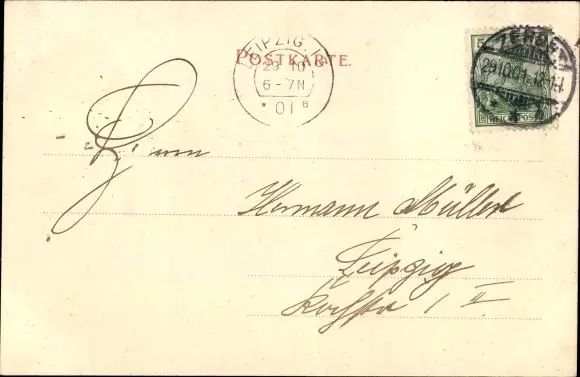 POSTKARTE.
LEIPZIG. 1.
29 10
6-7N
* 01 B
5
ZERBST
29.10.01.12-1N
REICHSPOST
Herrn
Hermann Müller
Leipzig
II